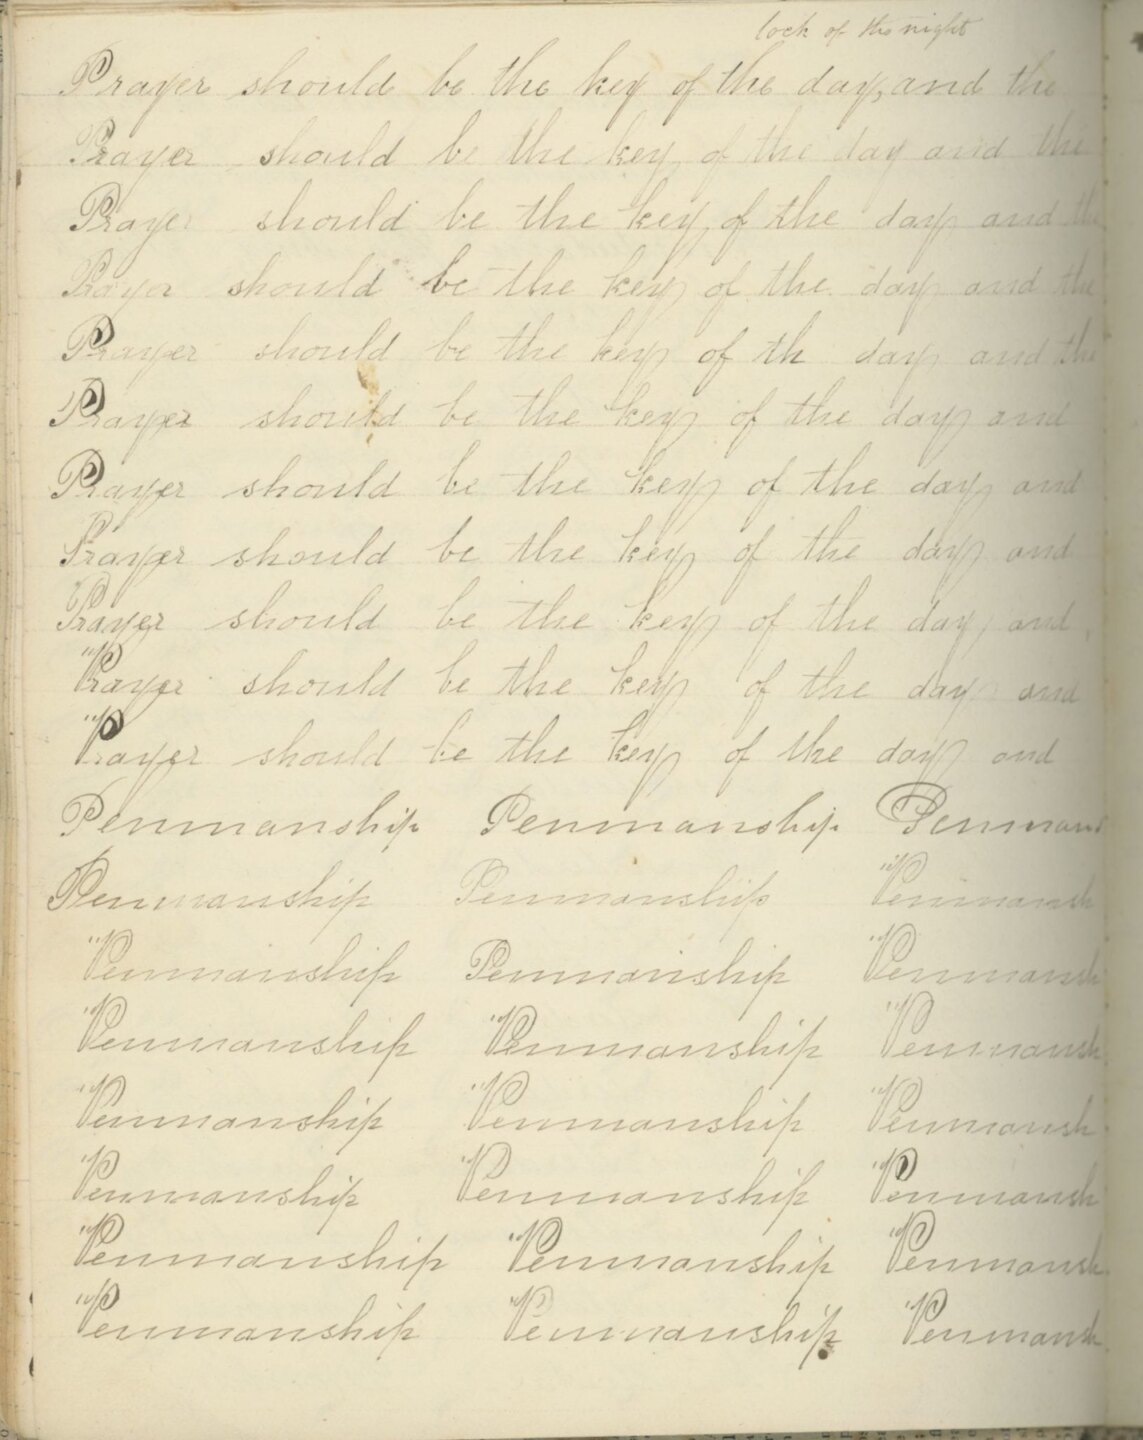 lock of the night
Prayer should be the key of the day, and the
Prayer should be the key of the day and the
Prayer should be the key of the day and the
Prayer should be the key of the day and the
Prayer should be the key of th day and the
Prayer should be the key of the day and
Prayer should be the key of the day and
Prayer should be the key of the day and
Prayer should be the key of the day, and
Prayer should be the key of the day and
Prayer should be the key of the day and
Penmanship Penmanship Penmans
Penmanship Penmanship Penmansh
Penmanship Penmanship Penmansh
Penmanship Penmanship Penmansh
Penmanship Penmanship Penmansh
Penmanship Penmanship Penmansh
Penmanship Penmanship Penmansh
Penmanship Penmanship Penmansh